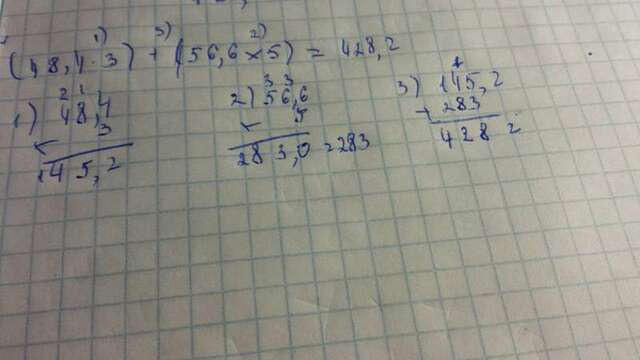 1) 3) 2)
(48,4 · 3) + (56,6 × 5) = 428,2
2 1 3 3 1
1) 48,4 2) 56,6 3) 145,2
× 3 × 5 + 283
145,2 283,0 = 283 428 2